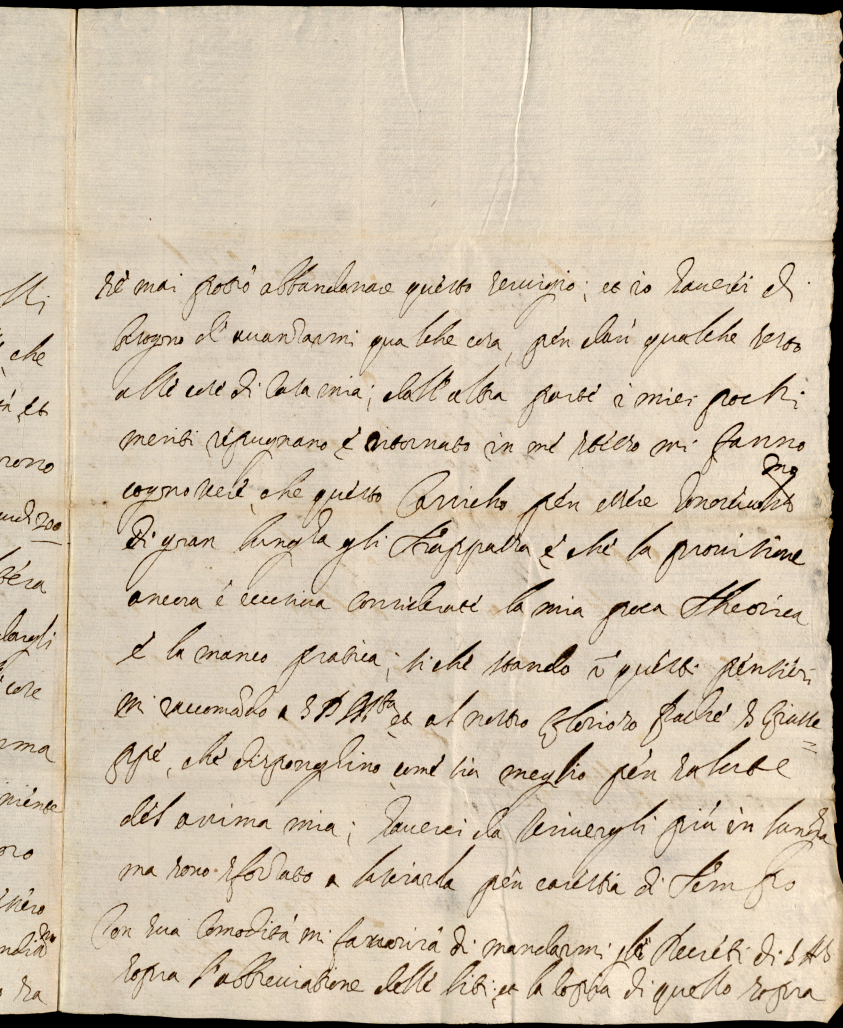 né mai potrò abbandonare questo servigio; et io haverei di
bisogno d'avanzarmi qualche cosa, per dar qualche sesto
alle cose di Casa mia; dall'altra parte i miei pochi
meriti repugnano é ritornato in mé stesso mi fanno
cognoscere che questo Carricho per essere honor.mo
di gran lungha gli strappassa, é che la provisione
ancora é eccessiva considerate la mia poca theorica
é la manco pratica; si ché stando ī questi pensieri
mi raccomādo a S D M.tà et al nostro Glorioso Padre S Giuse=
ppe, ché disponghino come sia meglio per salute
del anima mia; haverei da scrivergli più in lungha
ma sono sforzato a lasciarla per carestia di tempo
Con sua Comodità mi favorirà di mandarmi gli Decreti di S A S
sopra l'abbreviatione delle liti; et la Coppia di quello sopra
lli
che
et
rono
200
dargli
cose
niente
oro
sa